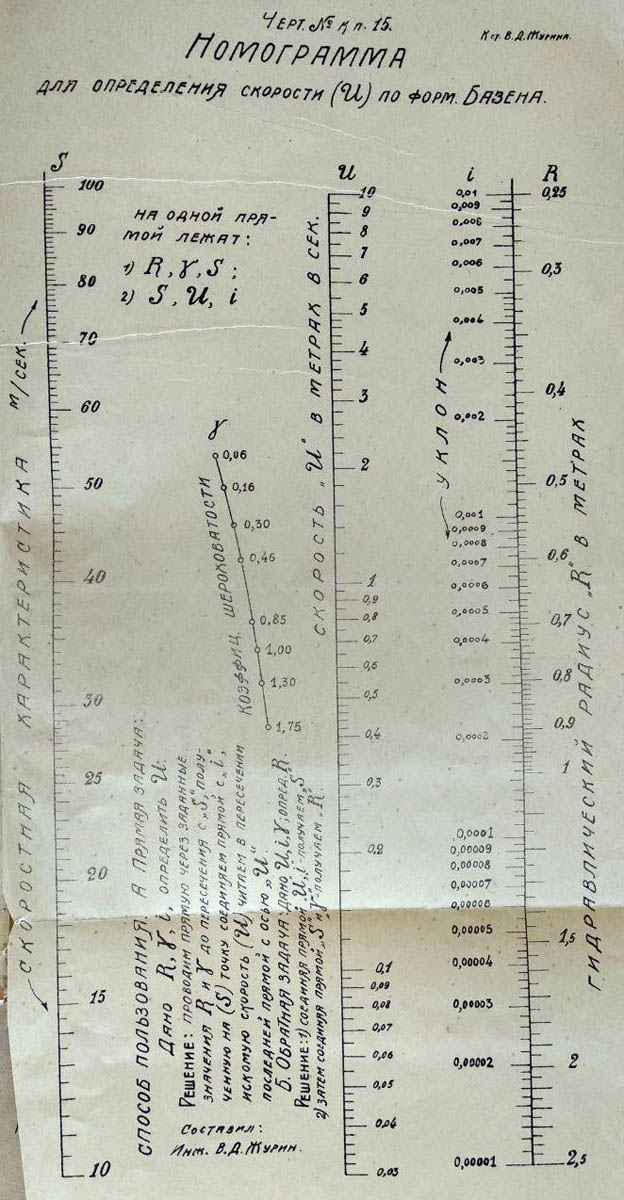 Черт. № к п. 15.
К ст. В. Д. Журина.
Номограмма
для определения скорости (U) по форм. Базена.
S
100
90
80
70
60
50
40
30
25
20
15
10
Скоростная характеристика м/сек.
на одной пря-
мой лежат:
1) R, γ, S;
2) S, U, i
γ
0,06
0,16
0,30
0,46
0,85
1,00
1,30
1,75
Коэффиц. шероховатости
U
10
9
8
7
6
5
4
3
2
1
0,9
0,8
0,7
0,6
0,5
0,4
0,3
0,2
0,1
0,09
0,08
0,07
0,06
0,05
0,04
0,03
Скорость „U" в метрах в сек.
i
0,01
0,009
0,008
0,007
0,006
0,005
0,004
0,003
0,002
0,001
0,0009
0,0008
0,0007
0,0006
0,0005
0,0004
0,0003
0,0002
0,0001
0,00009
0,00008
0,00007
0,00006
0,00005
0,00004
0,00003
0,00002
0,00001
Уклон
R
0,25
0,3
0,4
0,5
0,6
0,7
0,8
0,9
1
1,5
2
2,5
Гидравлический радиус „R" в метрах
Способ пользования. А Прямая задача:
Дано R, γ, i, определить U.
Решение: проводим прямую через заданные
значения R и γ до пересечения с „S", полу-
ченную на (S) точку соединяем прямой с „i",
искомую скорость (U) читаем в пересечении
последней прямой с осью „U"
Б. Обратная задача: дано U, i, γ; опред. R.
Решение: 1) соединяя прямой U, i - получаем „S"
2) затем соединяя прямой „S" и „γ" - получаем „R".
Составил:
Инж. В. Д. Журин.